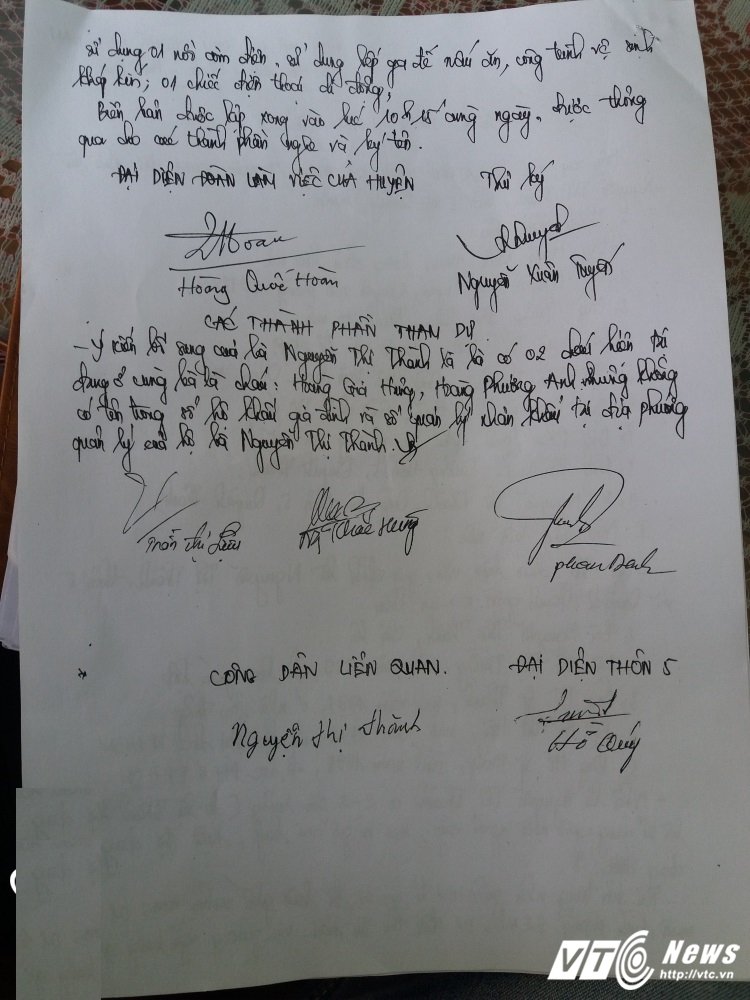 sử dụng 01 nồi cơm điện, sử dụng bếp ga để nấu ăn, công trình vệ sinh
khép kín; 01 chiếc điện thoại di động,
Biên bản được lập xong vào lúc 10h15' cùng ngày, được thông
qua cho các thành phần nghe và ký tên.
ĐẠI DIỆN ĐOÀN LÀM VIỆC CỦA HUYỆN Thư ký
Hoàng Quốc Hoàn
Nguyễn Xuân
CÁC THÀNH PHẦN THAM DỰ
- Ý kiến bổ sung của bà Nguyễn Thị Thành là bà có 02 cháu hiện
cùng bà là cháu: Hoàng Gia Hưng, Hoàng Phương Anh nhưng không
có tên trong sổ hộ khẩu gia đình và sổ quản lý nhân khẩu tại địa phương
quản lý của hộ bà Nguyễn Thị Thanh.
Trần Thị
phan Danh
CÔNG DÂN LIÊN QUAN. ĐẠI DIỆN THÔN 5
Nguyễn thị thành
Hồ Quý
VTC News
http://vtc.vn